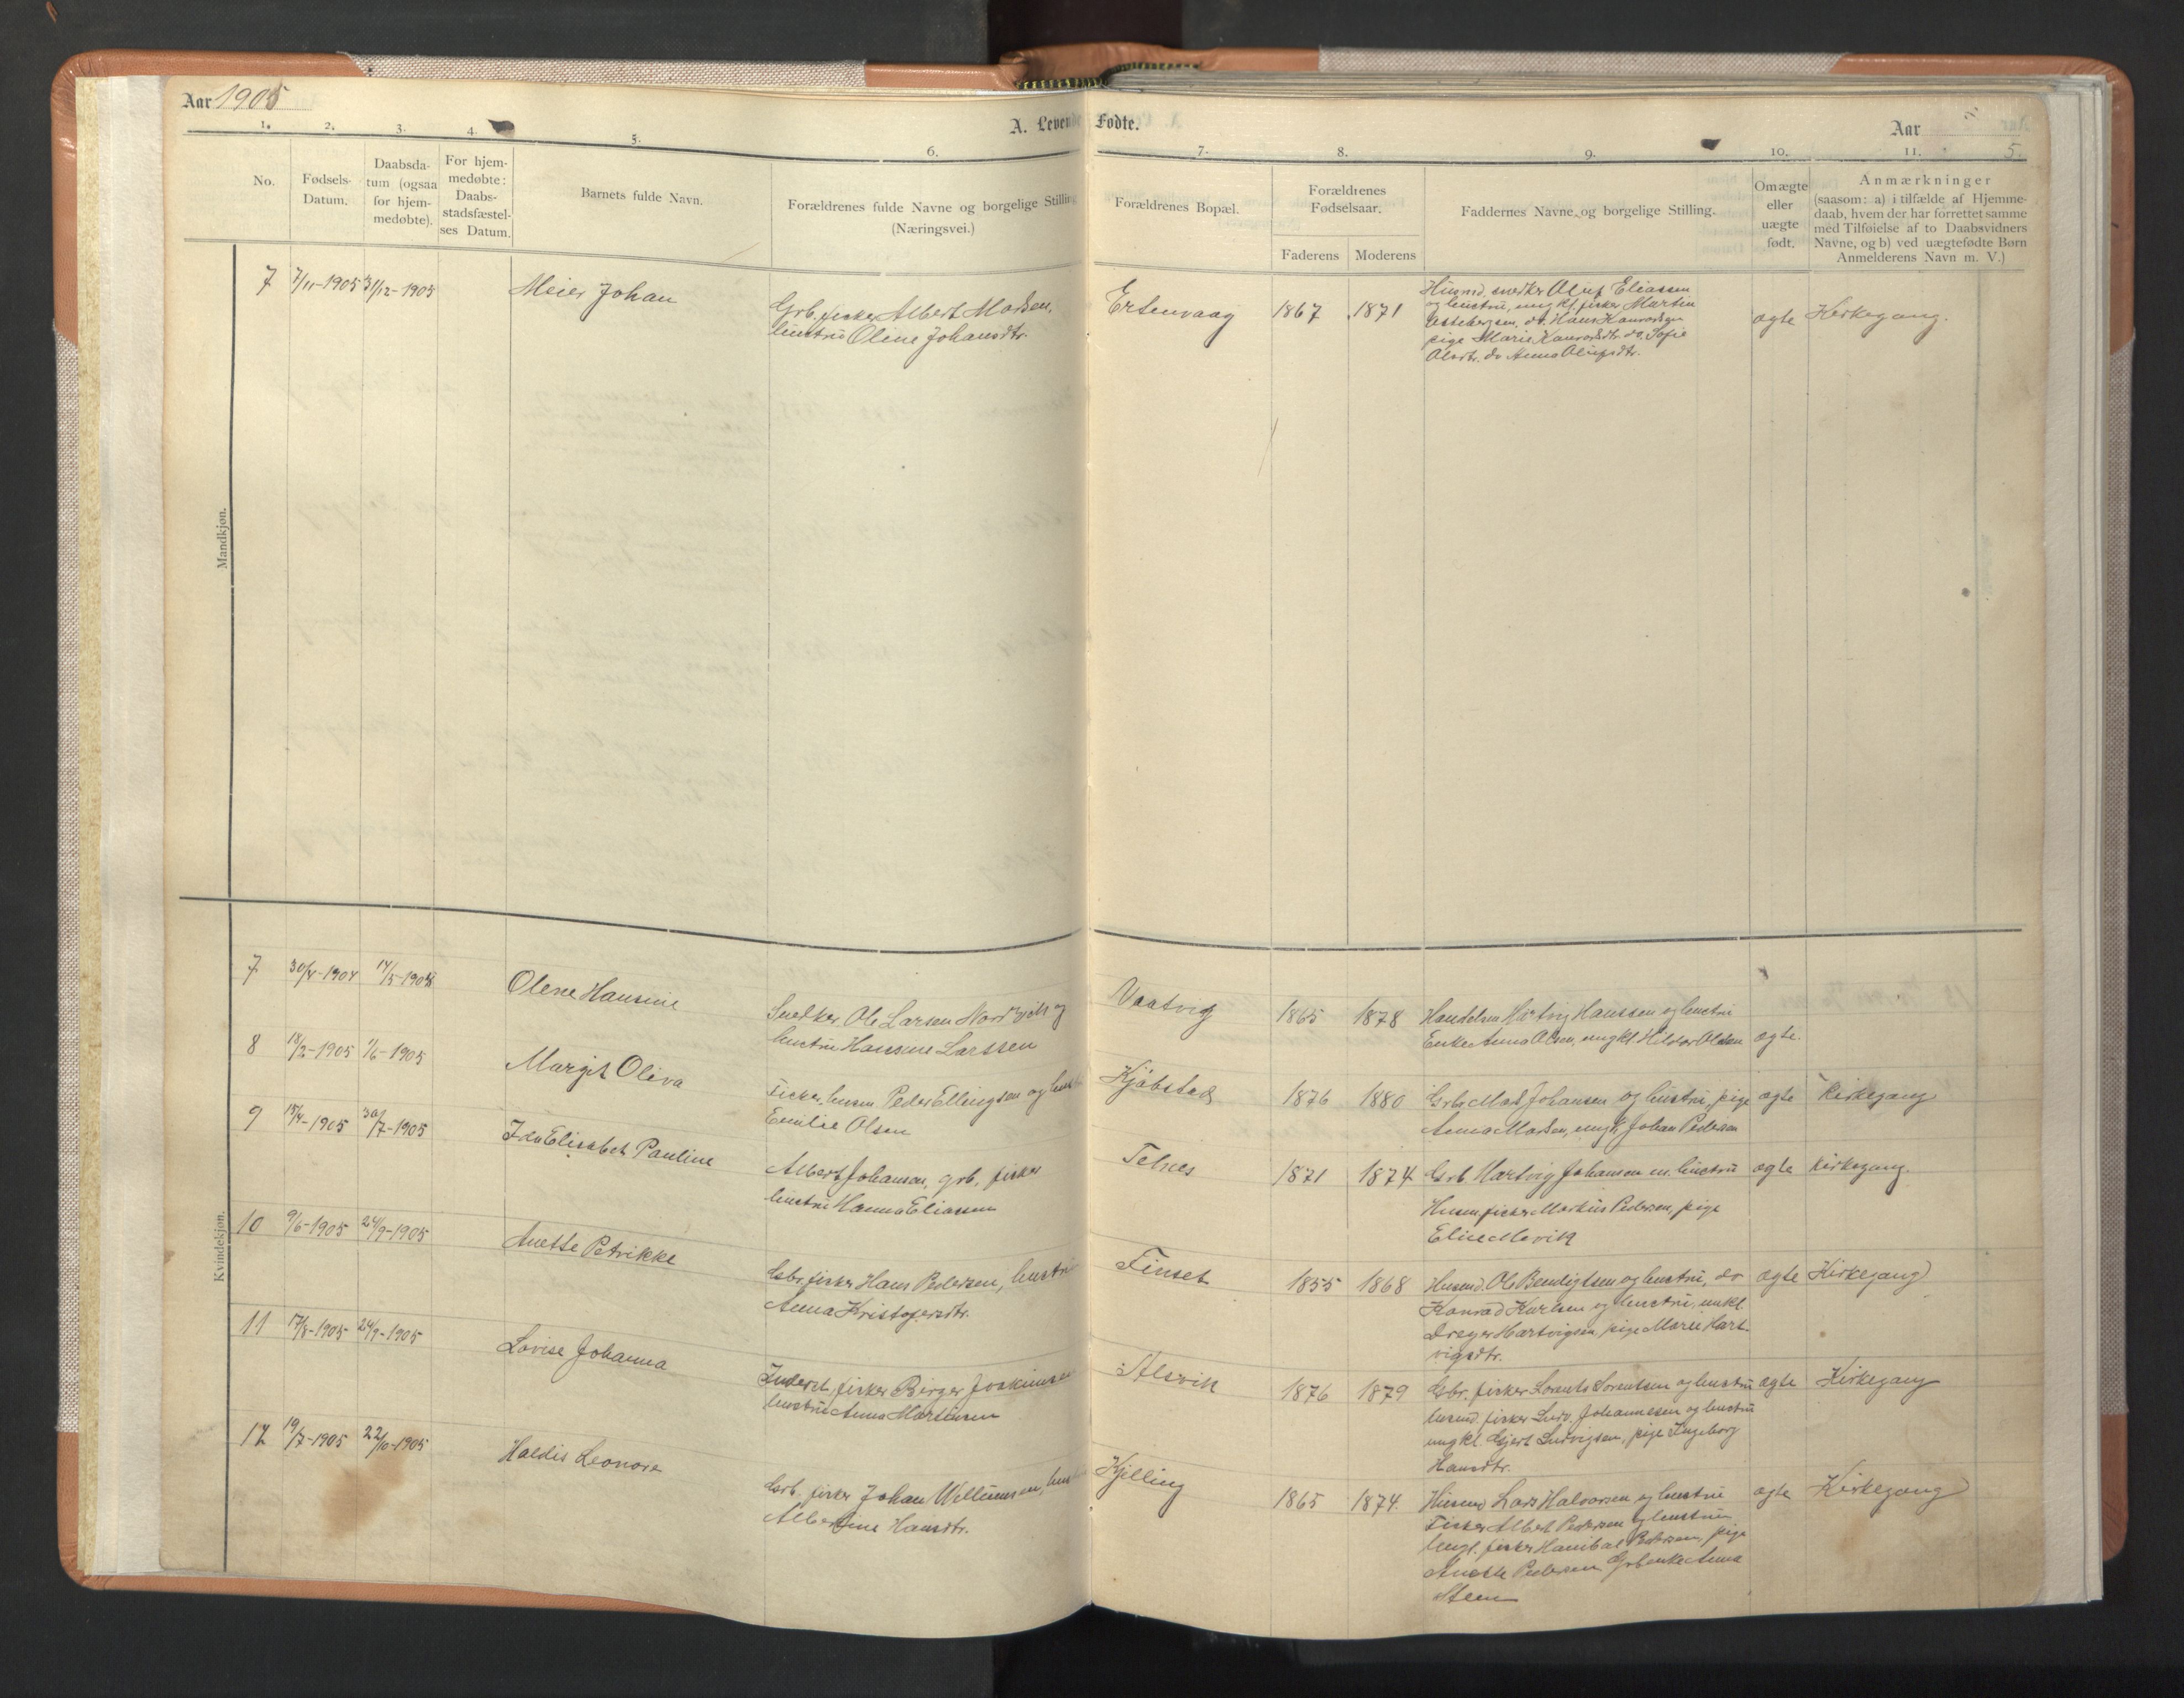 Aar 1905
A. Levende Fødte.
Aar
5.
1. 2. 3. 4. 5. 6. 7. 8. 9. 10. 11.
No.
Fødsels-
Datum.
Daabsda-
tum (ogsaa
for hjem-
medøbte).
For hjem-
medøbte:
Daabs-
stadsfæstel-
ses Datum.
Barnets fulde Navn.
Forældrenes fulde Navne og borgelige Stilling
(Næringsvei.)
Forældrenes Bopæl.
Forældrenes
Fødselsaar.
Faderens Moderens
Faddernes Navne og borgelige Stilling.
Om ægte
eller
uægte
født.
Anmærkninger
(saasom: a) i tilfælde af Hjemme-
daab, hvem der har forrettet samme
med Tilføielse af to Daabsvidners
Navne, og b) ved uægtefødte Børn
Anmelderens Navn m. V.)
Mandkjøn.
7 7/11-1905 31/12-1905 Meier Johan
Grb. fisker Albert Madsen,
hustru Olene Johansdtr.
Ertenvaag 1867 1871
Husmd. snedker Oluf Eliassen
og hustru, ungkl. fisker Martin
do. Hans
pige Marie do. Sofie
Olsdtr. do Anna Olufsdtr.
ægte Kirkegang.
Kvindekjøn.
7 30/4-1904 14/5-1905 Olene Hansine
Snedker Ole Larsen Nordvik og
hustru Hansine Larssen
Vaatvig 1865 1878
Handelsm Hartvig Hanssen og hustru
Enke Anna Olsen, ungkl Hildor Olsen
ægte.
8 18/2-1905 1/6-1905 Margit Oliva
Fisker, husm Peder Ellingsen og
Emilie Olsen
Kjøbstad 1876 1880
Grb. Mad Johansen og hustru, pige
Anna Madsen, ungk. Johan Pedersen
ægte Kirkegang
9 15/4-1905 30/7-1905 Ida Elisabet Pauline
Albert Johansen, grb. fisker
hustru Hanna Eliassen
Telnes 1871 1874
Grb Hartvig Johansen m. hustru
Husm fisker Markus Pedersen, pige
Elise Mevik
ægte Kirkegang.
10 9/6-1905 24/9-1905 Anette Petrikke
Gbr. fisker Hans Pedersen, hustru
Anna Kristofersdtr.
Finset 1855 1868
Husmd. Ol Bendigtsen og hustru, do
Konrad Karlsen og hustru, unkl.
Dreyer Hartvigsen, pige Marie Hart-
vigsdtr.
ægte Kirkegang
11 17/8-1905 24/9-1905 Lovise Johanna
Inderst, fisker Birger Joakimsen
hustru Anna Martinsen
Alsvik 1876 1879
Gbr. fisker Lorents Lorentsen og hustru
husmd. fisker Ludv. Johannesen og hustru
ungkl. Gjert Ludvigsen, pige Ingeborg
Hansdtr.
ægte Kirkegang
12 19/7-1905 22/10-1905 Haldis Leonore
Grb. fisker Johan Willumsen,
Albertine Hansdtr.
Kjelling 1865 1874
Husmd Lars Halvorsen og hustru
Fisker Albert Pedersen og hustru
Ungk. fisker Hanibal Pedersen, pige
Anette Pedersen Grb enke Anna
Steen
ægte Kirkegang